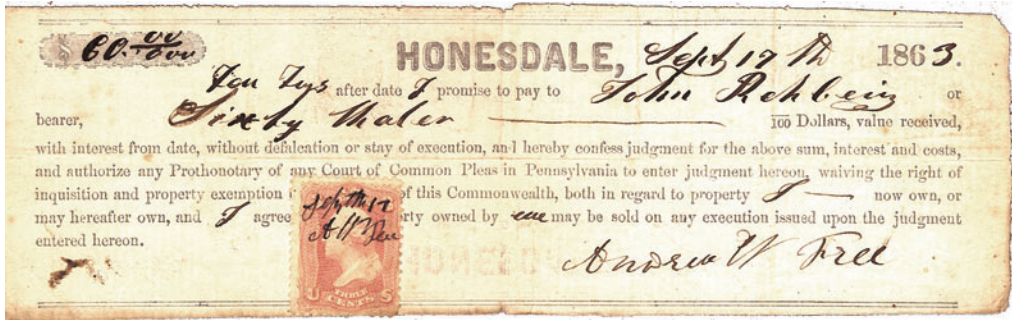 $ 60.00/000 HONESDALE, Sept 17th 1863.
after date I promise to pay to John Rehbein or
bearer, Sixty thaler 100 Dollars, value received,
with interest from date, without defalcation or stay of execution, and hereby confess judgment for the above sum, interest and costs,
and authorize any Prothonotary of any Court of Common Pleas in Pennsylvania to enter judgment hereon, waiving the right of
inquisition and property exemption of this Commonwealth, both in regard to property I now own, or
may hereafter own, and I agree owned by me may be sold on any execution issued upon the judgment
entered hereon.
Andrew W Free
U THREE CENTS S